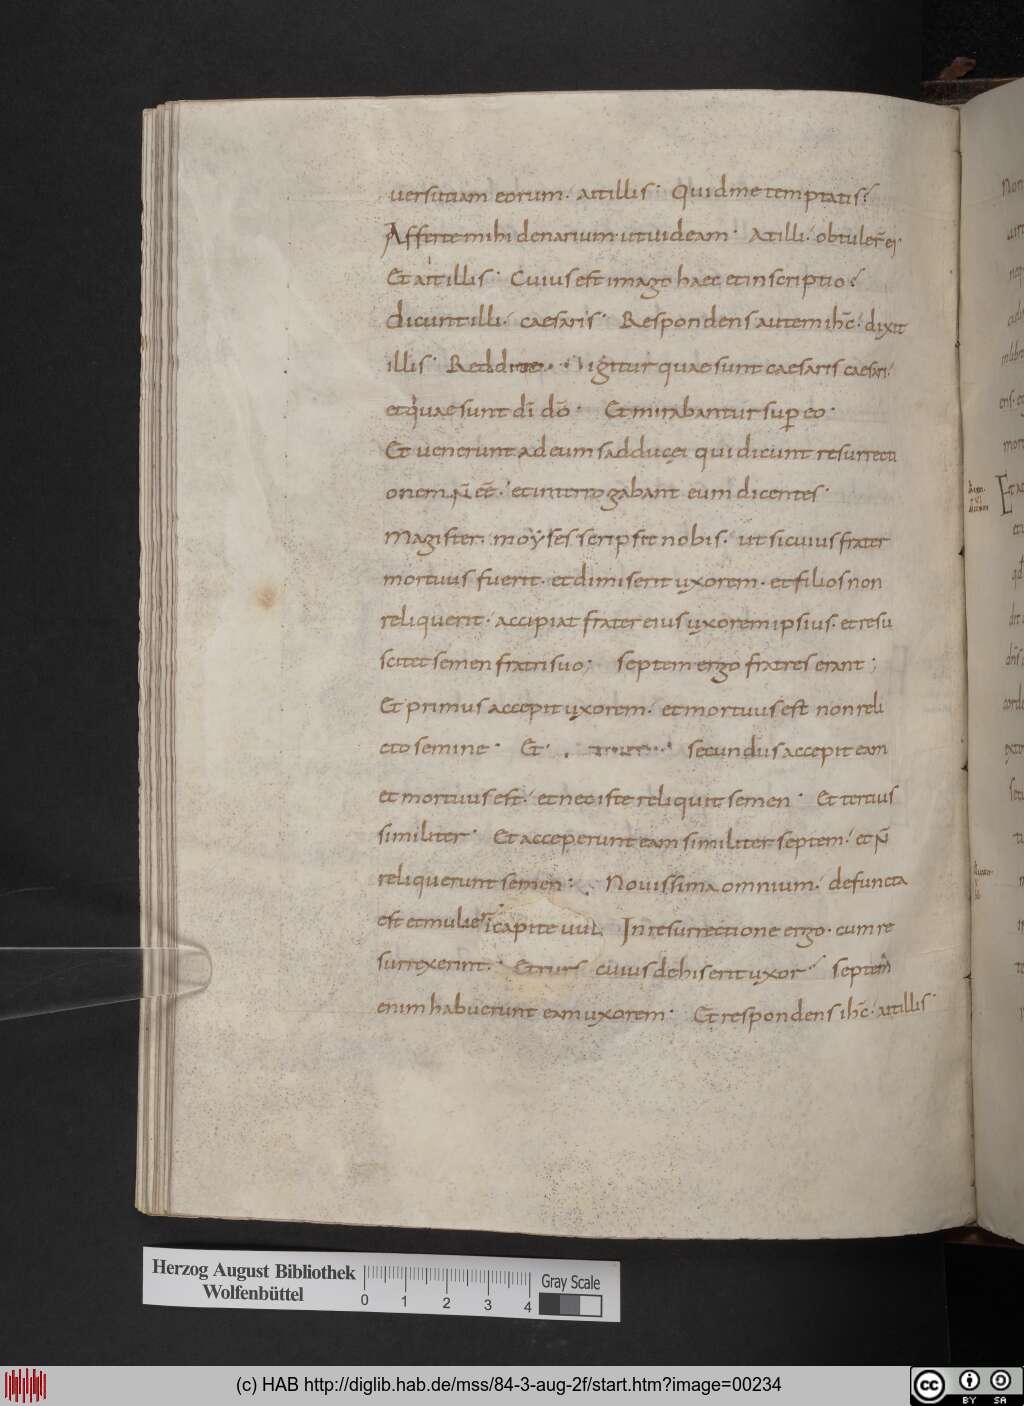 uersutiam eorum. ait illis· Quid me temptatis?
Afferte mihi denarium ut uideam· At illi· obtuler̄ ei·
Et ait illis· Cuius est imago haec et inscriptio?
dicunt illi· caesaris· Respondens autem ih̄c· dixit
illis· Reddite igitur quae sunt caesaris caesari·
et quae sunt dī dō· Et mirabantur sup eo·
Et uenerunt ad eum sadducęi qui dicunt resurrecti
onem n̄ eē· et interrogabant eum dicentes·
Magister. moyses scripsit nobis· ut si cuius frater
mortuus fuerit· et dimiserit uxorem· et filios non
reliquerit· accipiat frater eius uxorem ipsius· et resu
scitet semen fratri suo; septem ergo fratres erant;
Et primus accepit uxorem· et mortuus est non reli
cto semine· Et secundus accepit eam
et mortuus est· et nec iste reliquit semen· Et tertius
similiter· Et acceperunt eam similiter septem· et n̄
reliquerunt semen· Nouissima omnium· defuncta
est et mulier In resurrectione ergo· cum re
surrexerint· cuius de his erit uxor· septem
enim habuerunt eam uxorem· Et respondens ih̄c· ait illis·
Herzog August Bibliothek
Wolfenbüttel
0 1 2 3 4
Gray Scale
(c) HAB http://diglib.hab.de/mss/84-3-aug-2f/start.htm?image=00234
cc BY SA